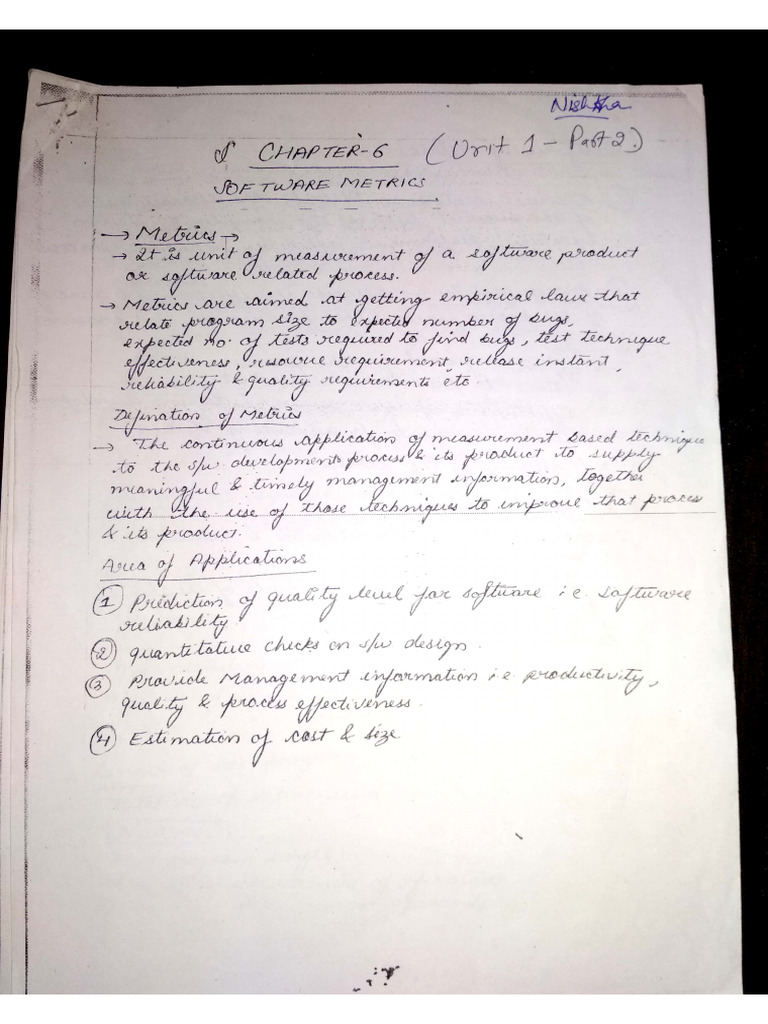 Nishtha
CHAPTER-6 (Unit 1 - Part 2.)
SOFTWARE METRICS
→ Metrics →
→ It is unit of measurement of a software product
or software related process.
→ Metrics are aimed at getting empirical laws that
relate program size to expected number of bugs,
expected no. of tests required to find bugs, test technique
effectiveness, resource requirement, release instant,
reliability & quality requirements etc.
Defination of Metrics
→ The continuous application of measurement based technique
to the s/w development process & its product to supply
meaningful & timely management information, together
with the use of those techniques to improve that process
& its product.
Area of Applications
① Prediction of quality level for software i.e. software
reliability
② Quantitative checks on s/w design.
③ Provide Management information i.e. productivity,
quality & process effectiveness.
④ Estimation of cost & size